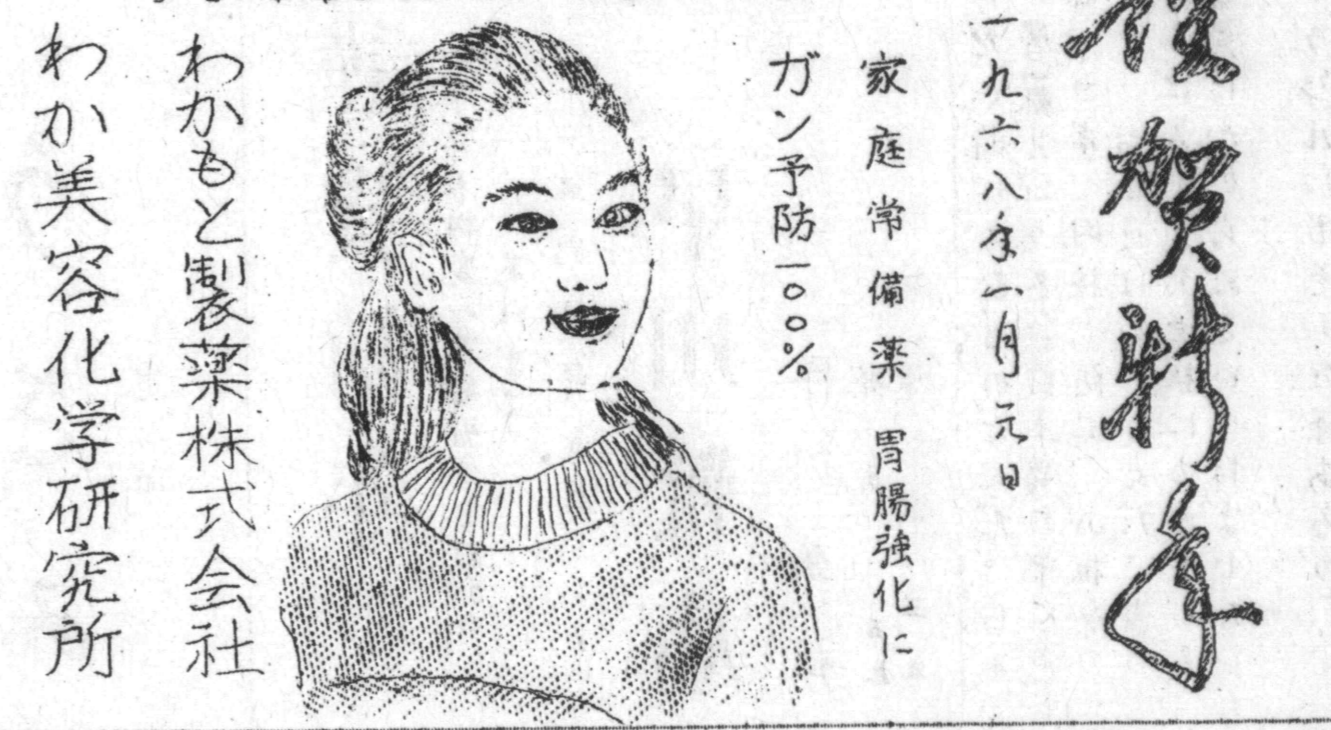 謹賀新年
一九六八年一月元日
家庭常備薬 胃腸強化に
ガン予防一〇〇%
わかもと製薬株式会社
わか美容化学研究所